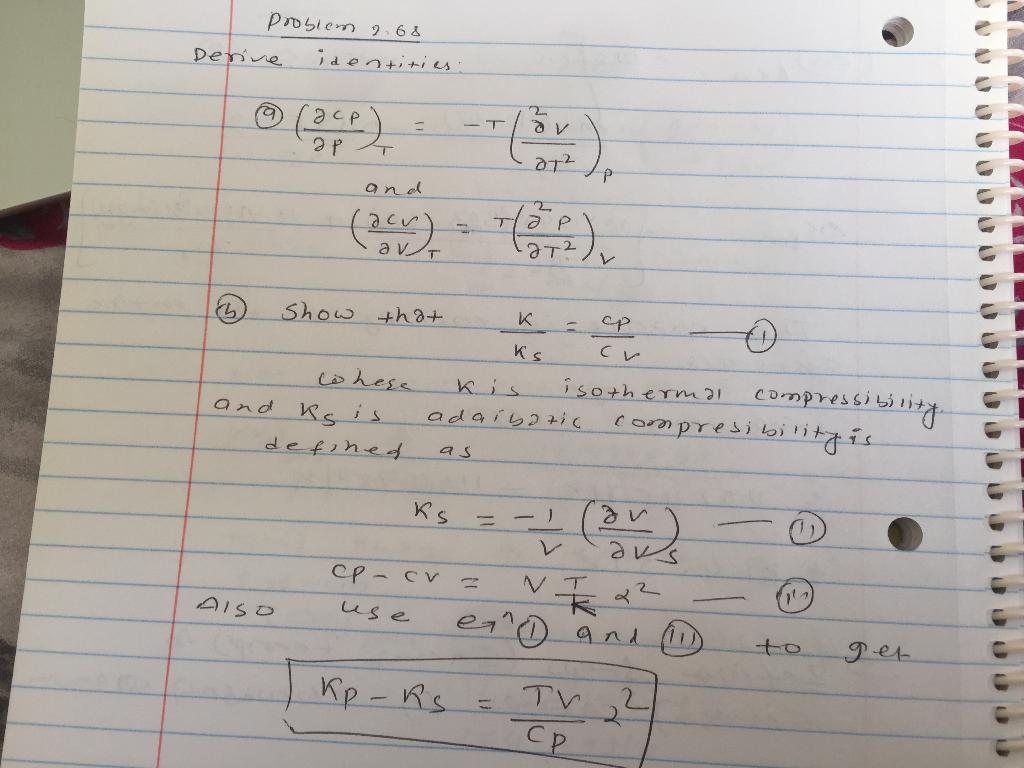 Problem 2.68
Derive identities:
(a) (∂cp/∂p)_T = -T(∂²v/∂T²)_p
and
(∂cv/∂v)_T = T(∂²p/∂T²)_v
(b) Show that K/Ks = cp/cv — (i)
where K is isothermal compressibility
and Ks is adaibatic compresibility is
defined as
Ks = -1/v (∂v/∂v)_s — (ii)
cp - cv = V T/K α² — (iii)
Also use eqn (i) and (iii) to get
Kp - Ks = TV/Cp α²